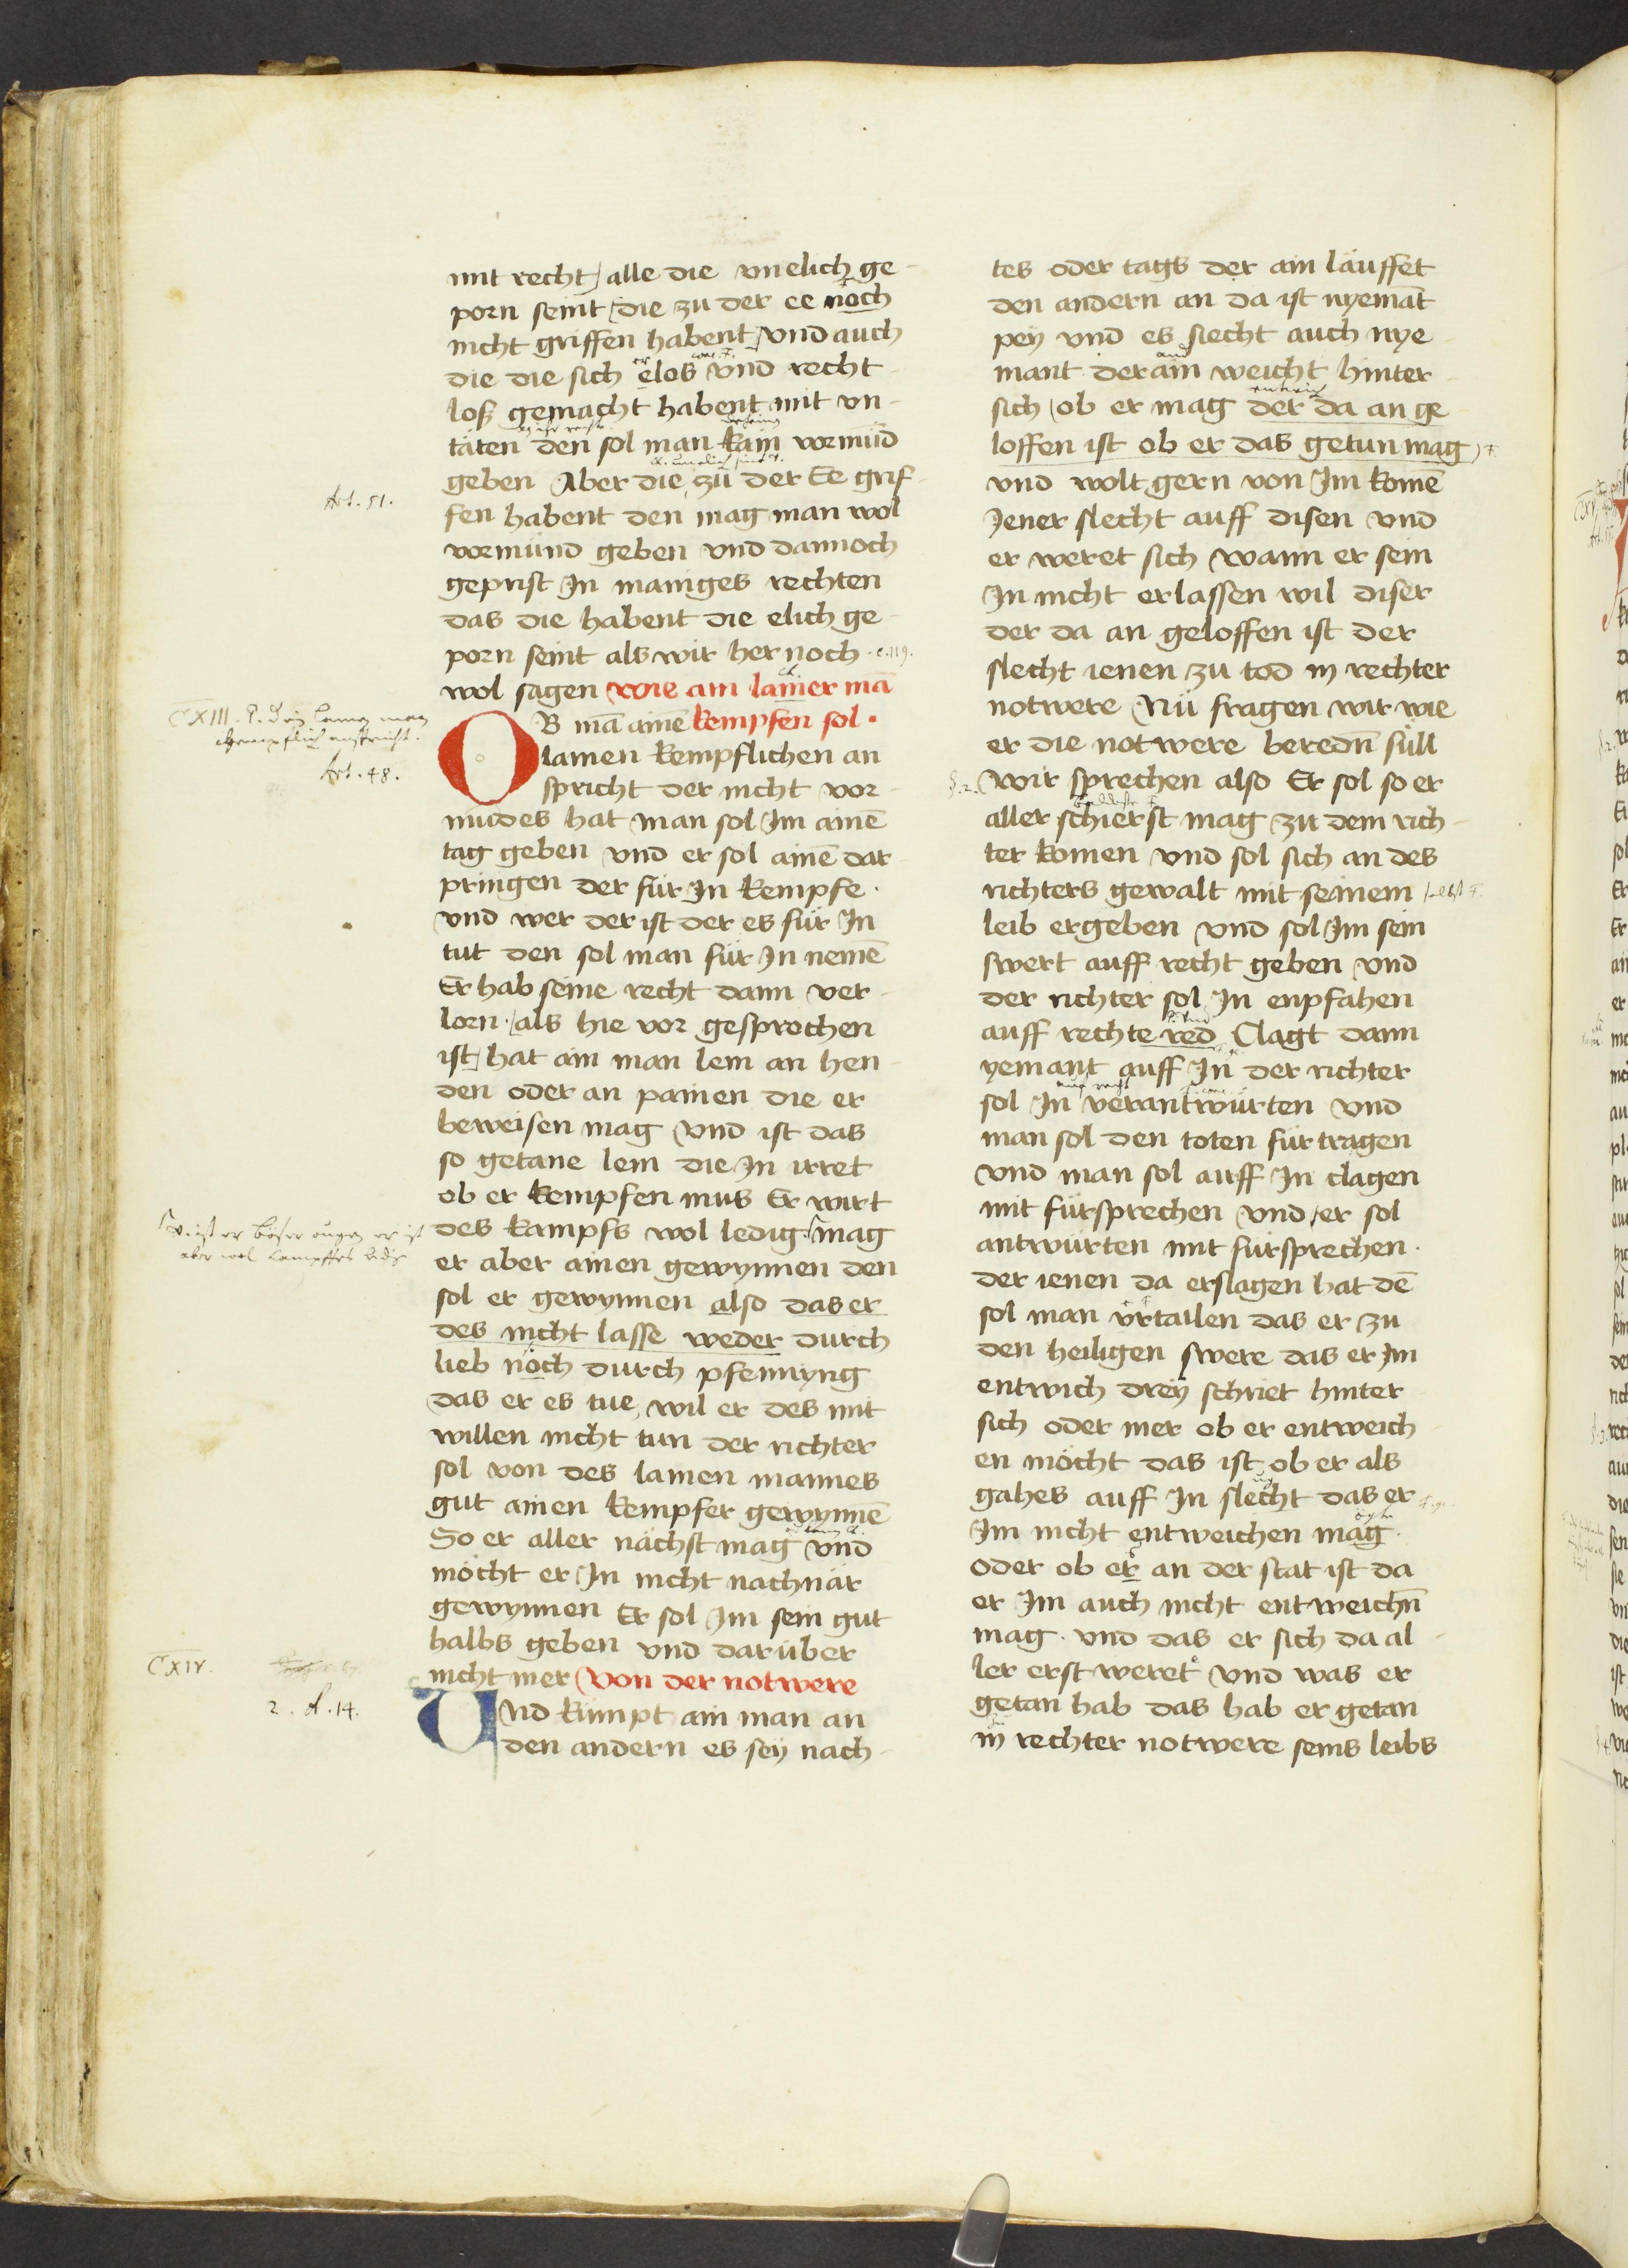 mit recht / alle die vnelich ge-
porn seint / die zu der ee noch
nicht griffen habent / vnd auch
die die sich elos vnd recht-
loß gemacht habent mit vn-
täten den sol man kain vormüd
geben Aber die zu der Ee grif-
fen habent den mag man wol
vormund geben vnd dannoch
geprist In maniges rechten
das die habent die elich ge-
porn seint als wir her noch
wol sagen wie ain lamer mā
OB mā ainē kempfen sol ·
lamen kempflichen an
spricht der nicht vor-
mūdes hat man sol Im ainē
tag geben vnd er sol ainē dar
pringen der für In kempfe ·
vnd wer der ist der es für In
tut den sol man für In nemē
Er hab seine recht dann ver-
lorn · / als hie vor gesprochen
ist / hat ain man lem an hen-
den oder an painen die er
beweisen mag vnd ist das
so getane lem die In irret
ob er kempfen mus Er wirt
des kampfs wol ledig · mag
er aber ainen gewynnen den
sol er gewynnen also das er
des nicht lasse weder durch
lieb noch durch pfennyng
das er es tue, wil er des mit
willen nicht tun der richter
sol von des lamen mannes
gut ainen kempfer gewynnē
So er aller nächst mag vnd
möcht er In nicht nachnär
gewynnen Er sol Im sein gut
halbs geben vnd darüber
nicht mer Von der notwere
Vnd kumpt ain man an
den andern es sey nach-
Art. 51.
c. 119.
CXIII.
Art. 48.
CXIV.
2. A. 14.
tes oder tags der ain läuffet
den andern an da ist nyemāt
pey vnd es siecht auch nye-
mant der ain weicht hinter-
sich / ob er mag der da an ge-
loffen ist ob er das getun mag
vnd wolt gern von Im komē
Jener slecht auff disen vnd
er weret sich wann er sein
In nicht erlassen wil diser
der da an geloffen ist der
slecht ienen zu tod in rechter
notwere Nü fragen wir wie
er die notwere beredn̄ süll
§. 2. wir sprechen also Er sol so er
aller schierst mag zu dem rich-
ter komen vnd sol sich an des
richters gewalt mit seinem
leib ergeben vnd sol Im sein
swert auff recht geben vnd
der richter sol In enpfahen
auff rechte red Clagt dann
yemant auff In der richter
sol In verantwürten vnd
man sol den toten für tragen
vnd man sol auff In clagen
mit fürsprechen vnd er sol
antwürten mit fürsprechen ·
der ienen da erslagen hat dē
sol man vrtailen das er zu
den heiligen swere das er Im
entwich drey schriet hinter
sich oder mer ob er entweich-
en möcht das ist ob er als
gahes auff In slecht das er
Im nicht entweichen mag
oder ob er an der stat ist da
er Im auch nicht entweichn̄
mag · vnd das er sich da al-
ler erst weret vnd was er
getan hab das hab er getan
in rechter notwere seins leibs